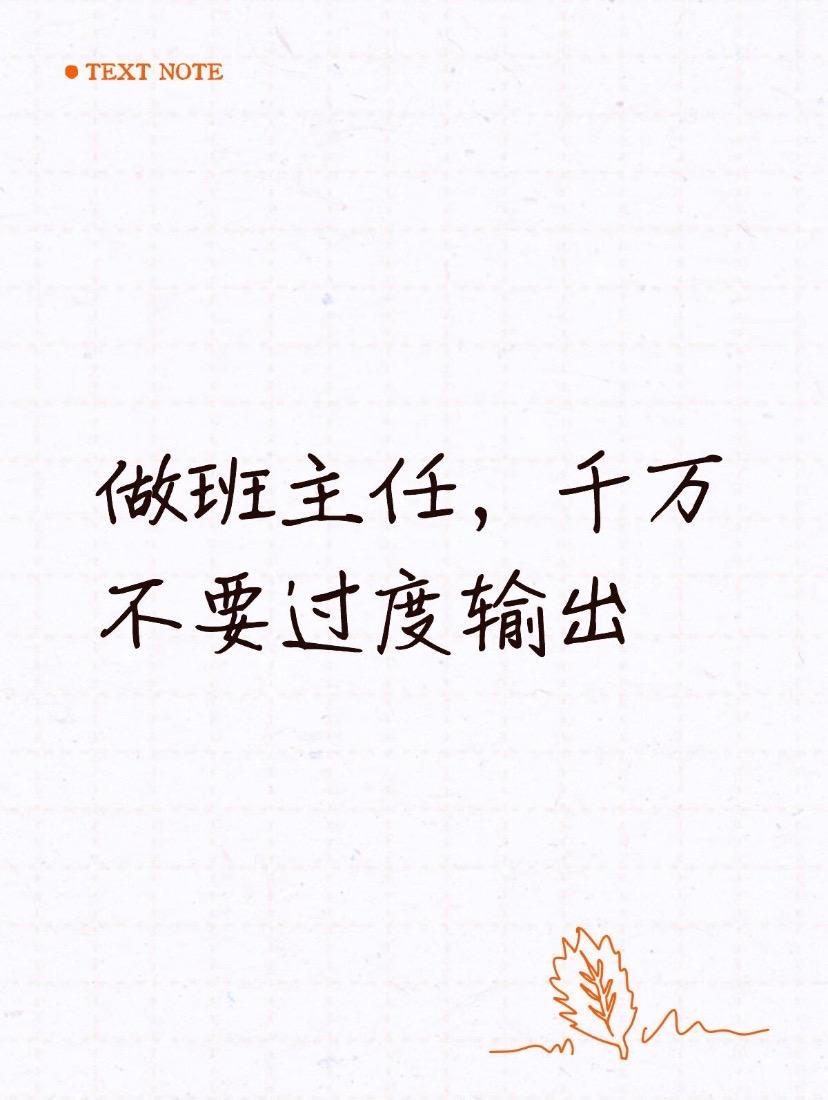 TEXT NOTE
做班主任，千万
不要过度输出